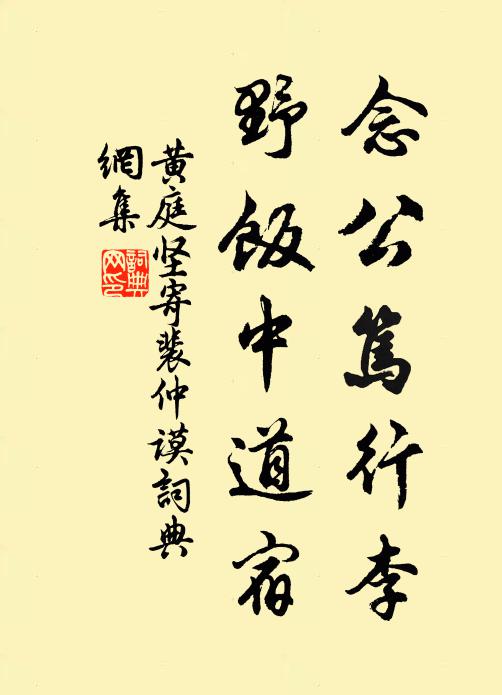 念公篤行李
野飯中道宿
黄庭坚寄裴仲謨詞典
網集
詞典
网印